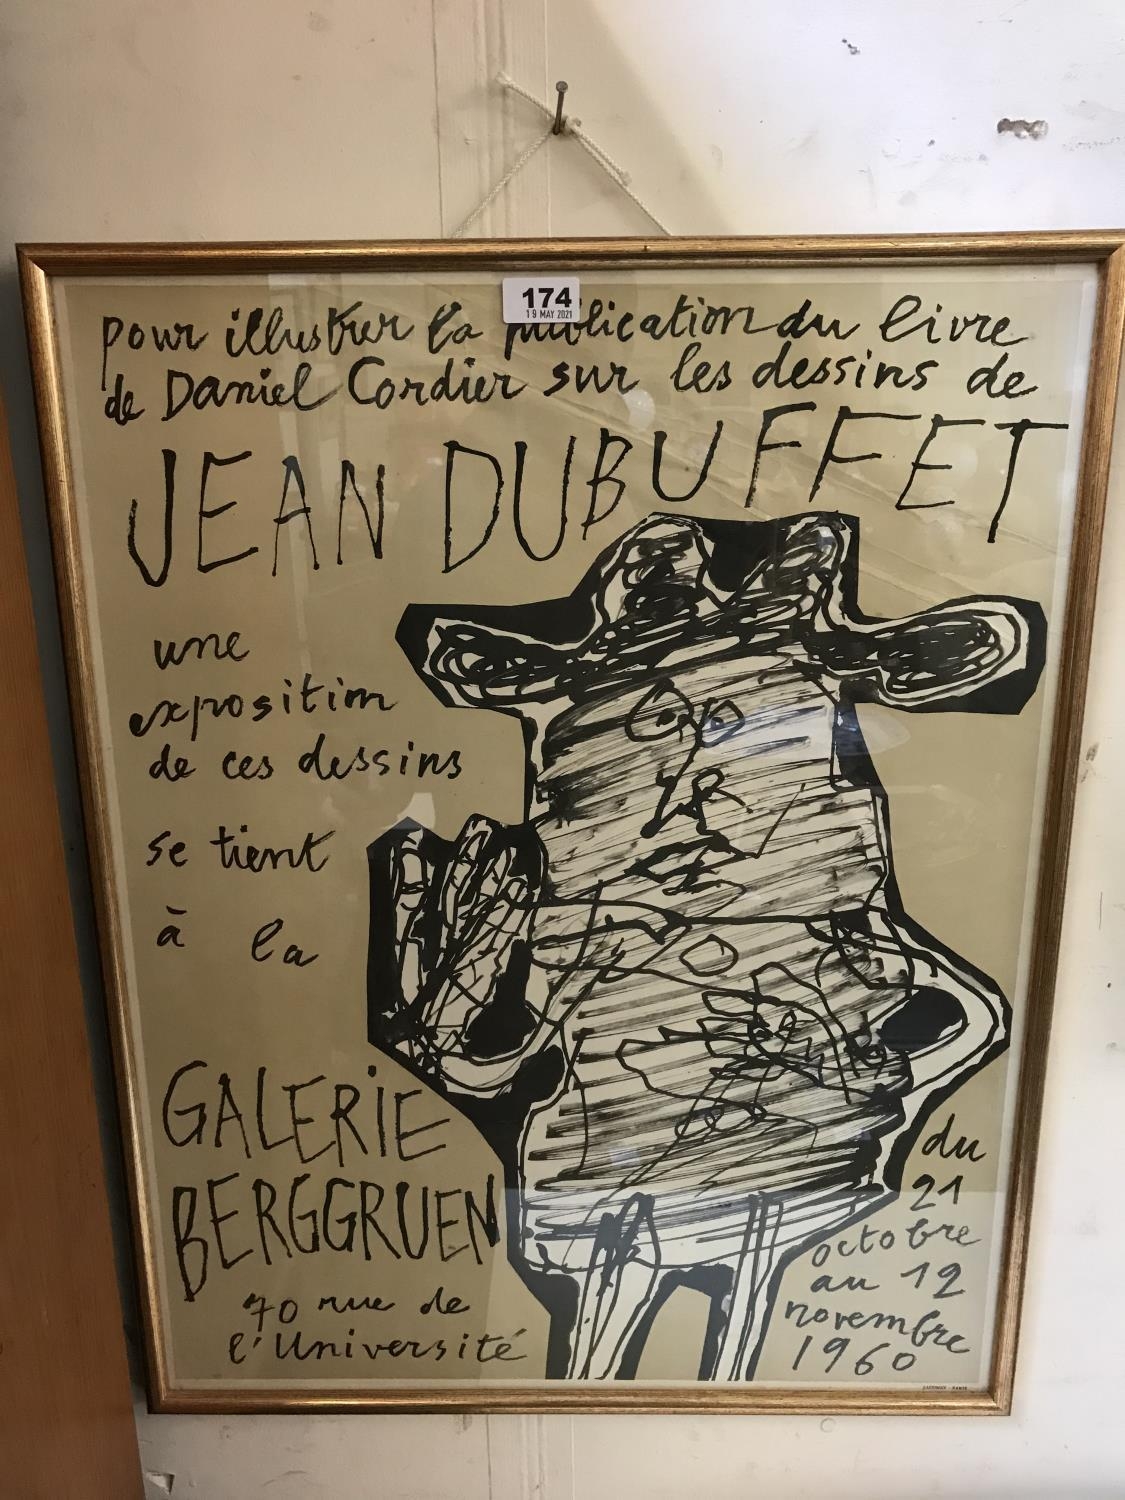 174
19 MAY 2021
pour illustrer la publication du livre
de Daniel Cordier sur les dessins de
JEAN DUBUFFET
une
exposition
de ces dessins
se tient
à la
GALERIE
BERGGRUEN
70 rue de
l'Université
du
21
octobre
au 12
novembre
1960